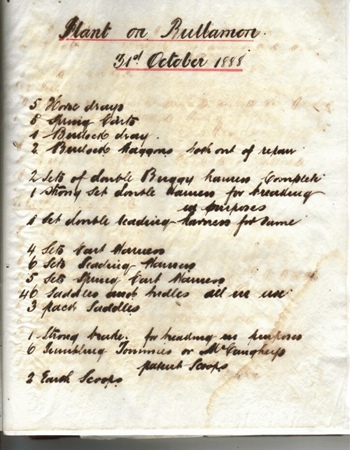 Plant on Bullamon.
31st October 1888
5 Horse drays
5 Spring Carts
1 Bullock dray.
2 Bullock Waggons both out of repair
2 Sets of double Buggy harness Complete
1 Strong Set double harness for breaking
in purposes
1 Set double leading harness for same
4 Sets Cart Harness
6 Sets Leading Harness
5 Sets Spring Cart Harness
40 Saddles and bridles all in use
3 pack Saddles
1 Strong brake for breaking in purposes
6 Tumbling Tommies or McCaughey's
patent Scoops
2 Earth Scoops